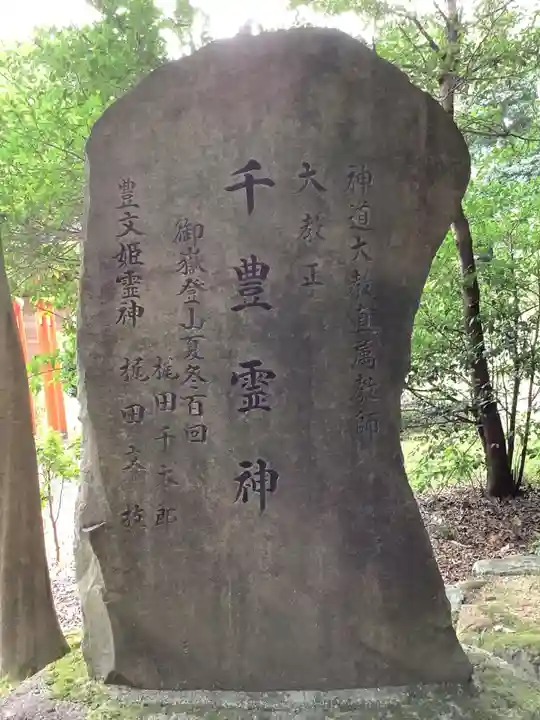 神道大教直属教師
大教正
千豊霊神
御嶽登山夏冬百回
梶田千太郎
豊文姫霊神 梶田